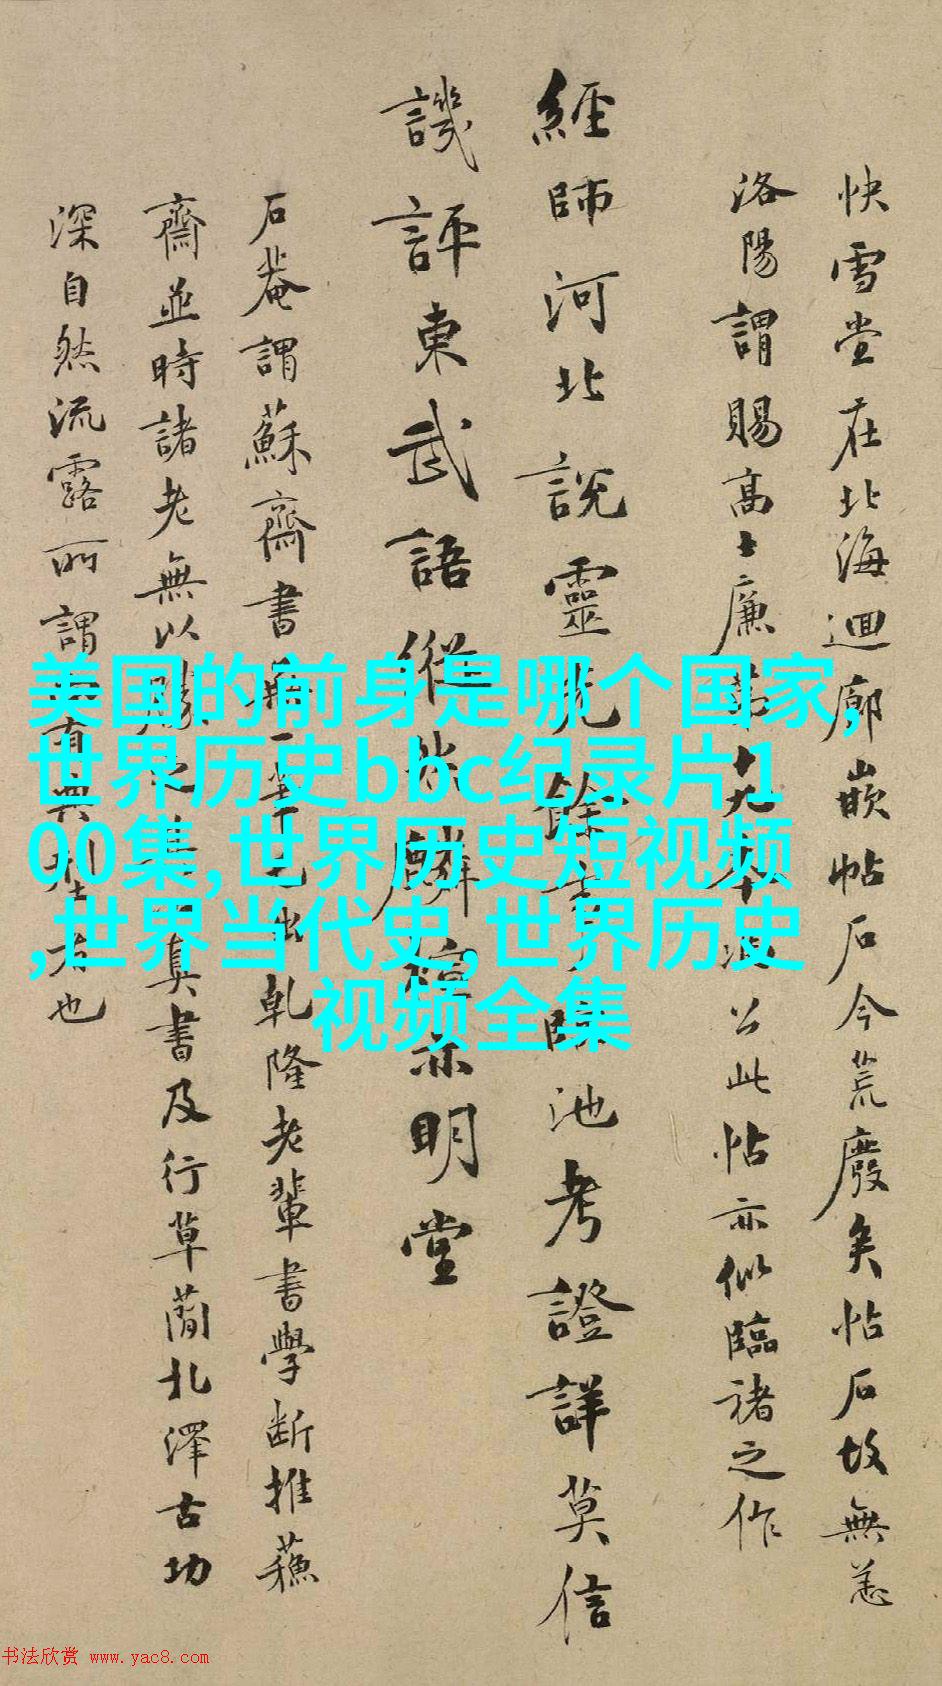 快雪堂在北海迴廊嵌帖石今荒廢矣帖石故無恙
洛陽謂賜高士廉第十九本渡公此帖亦似臨褚之作
經師河北說靈光餘事臨池考證詳莫信
譏評東武語縱然麟楦亦明堂
石菴謂蘇齋書無一筆己出乾隆老輩書學斷推蘓
齋並時諸老無以勝之真書及行草蘭北澤古功
深自然流露所謂有典型者也
美国的前身是哪个国家,
世界历史bbc纪录片1
00集,世界历史短视频
,世界当代史,世界历史
视频全集
书法欣赏 www.yac8.com